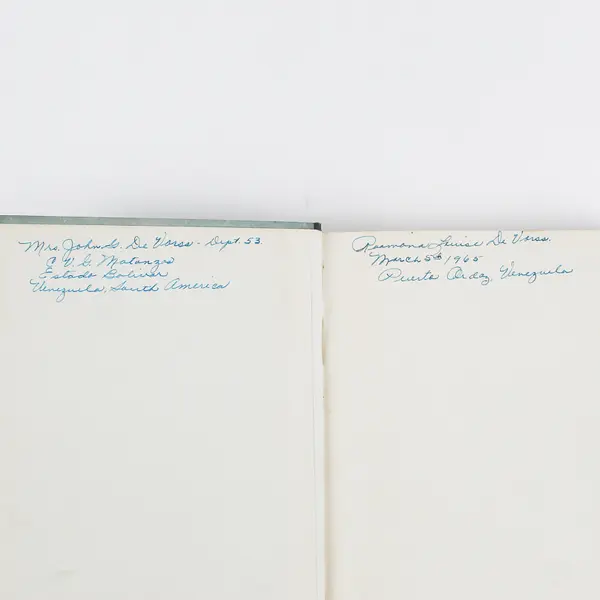 Mrs. John G. De Vorss - Dept. 53.
C.V.G. Matanzas
Estado Bolivar
Venezuela, South America
Ramona Louise De Vorss.
March 5th 1965
Puerto Ordaz, Venezuela